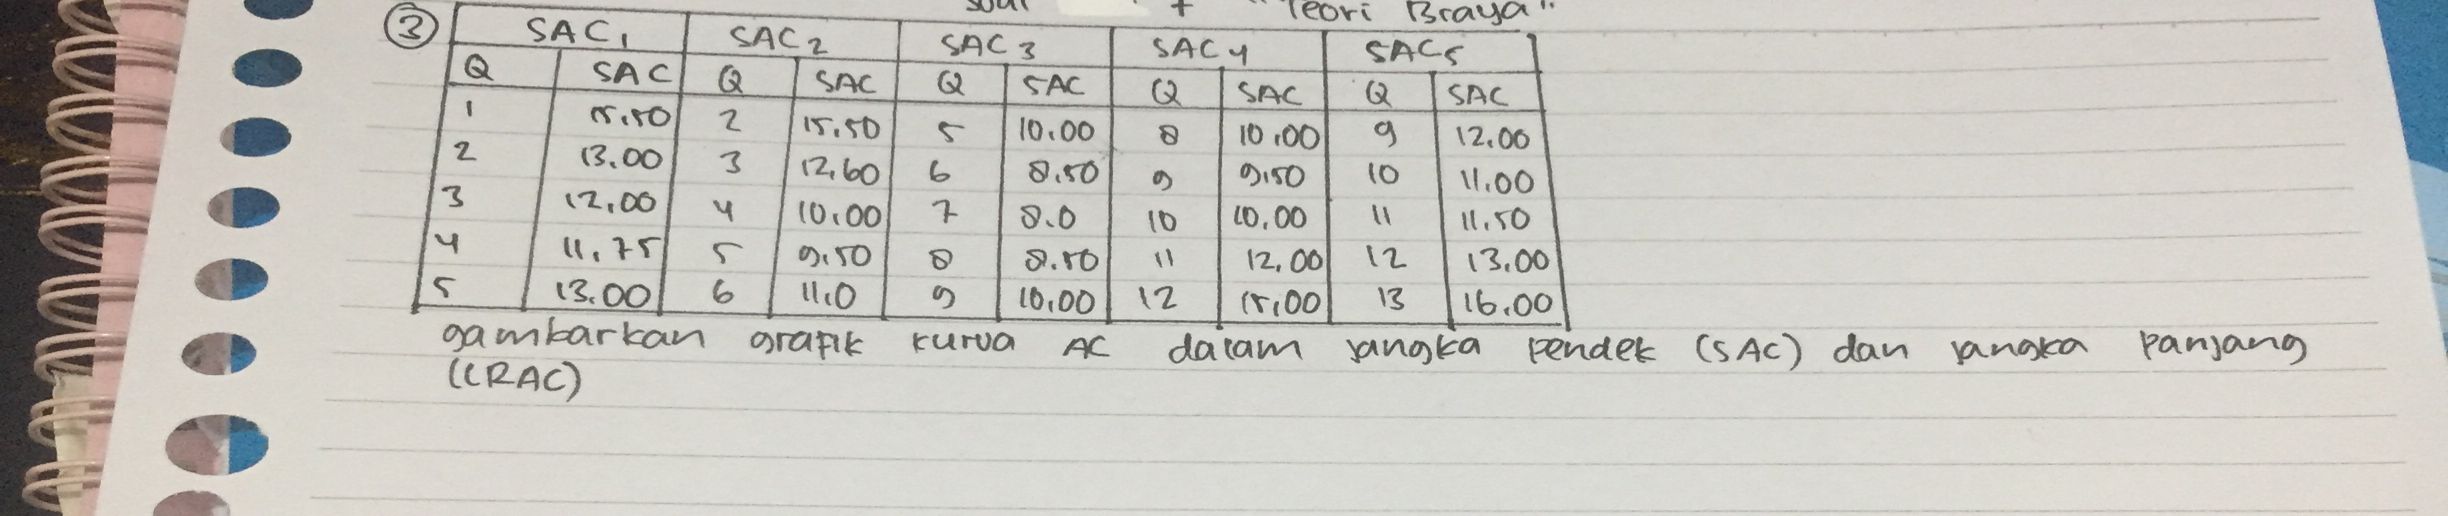 + "Teori Biaya"
③ SAC1 SAC2 SAC3 SAC4 SAC5
Q SAC Q SAC Q SAC Q SAC Q SAC
1 15.50 2 15.50 5 10.00 8 10.00 9 12.00
2 13.00 3 12,60 6 8.50 9 9.50 10 11.00
3 12,00 4 10.00 7 8.0 10 10.00 11 11.50
4 11.75 5 9.50 8 8.50 11 12.00 12 13.00
5 13.00 6 11.0 9 10,00 12 15,00 13 16.00
gambarkan grafik kurva AC dalam jangka pendek (SAC) dan jangka panjang
(LRAC)